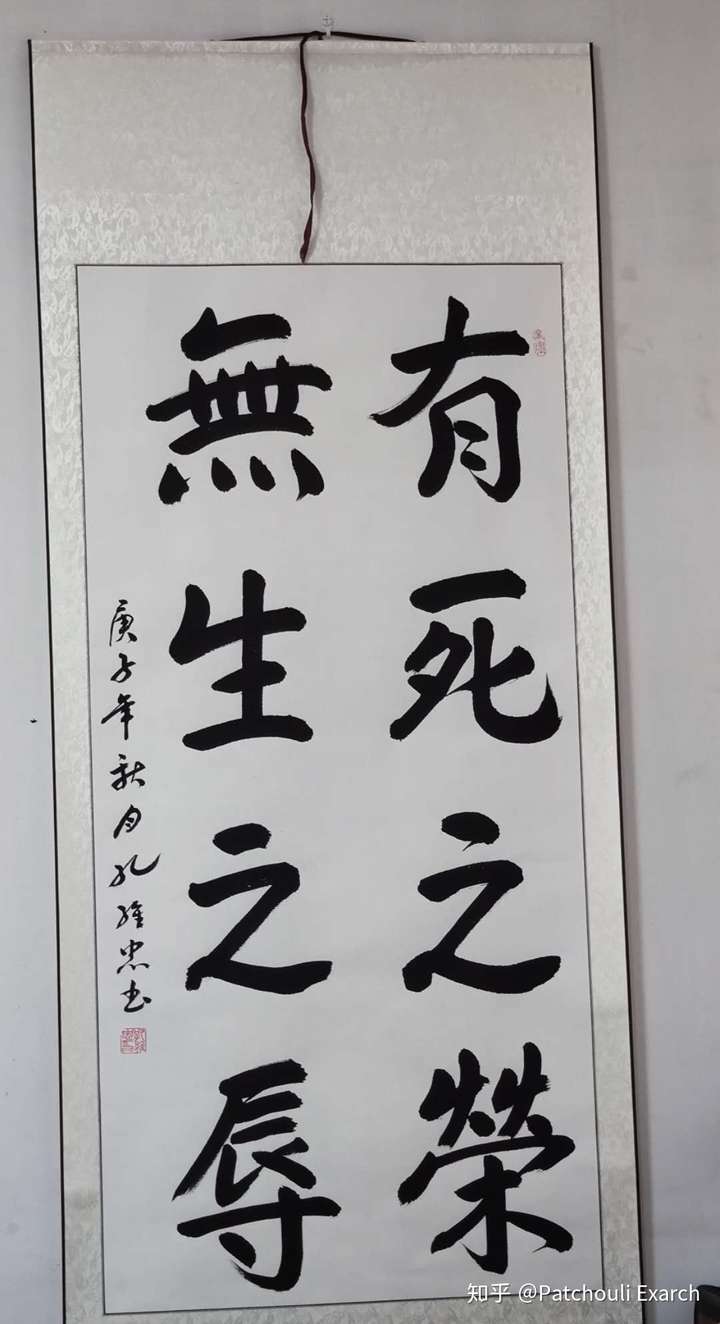 有死之榮
無生之辱
庚子年秋月孔維忠书
知乎 @Patchouli Exarch